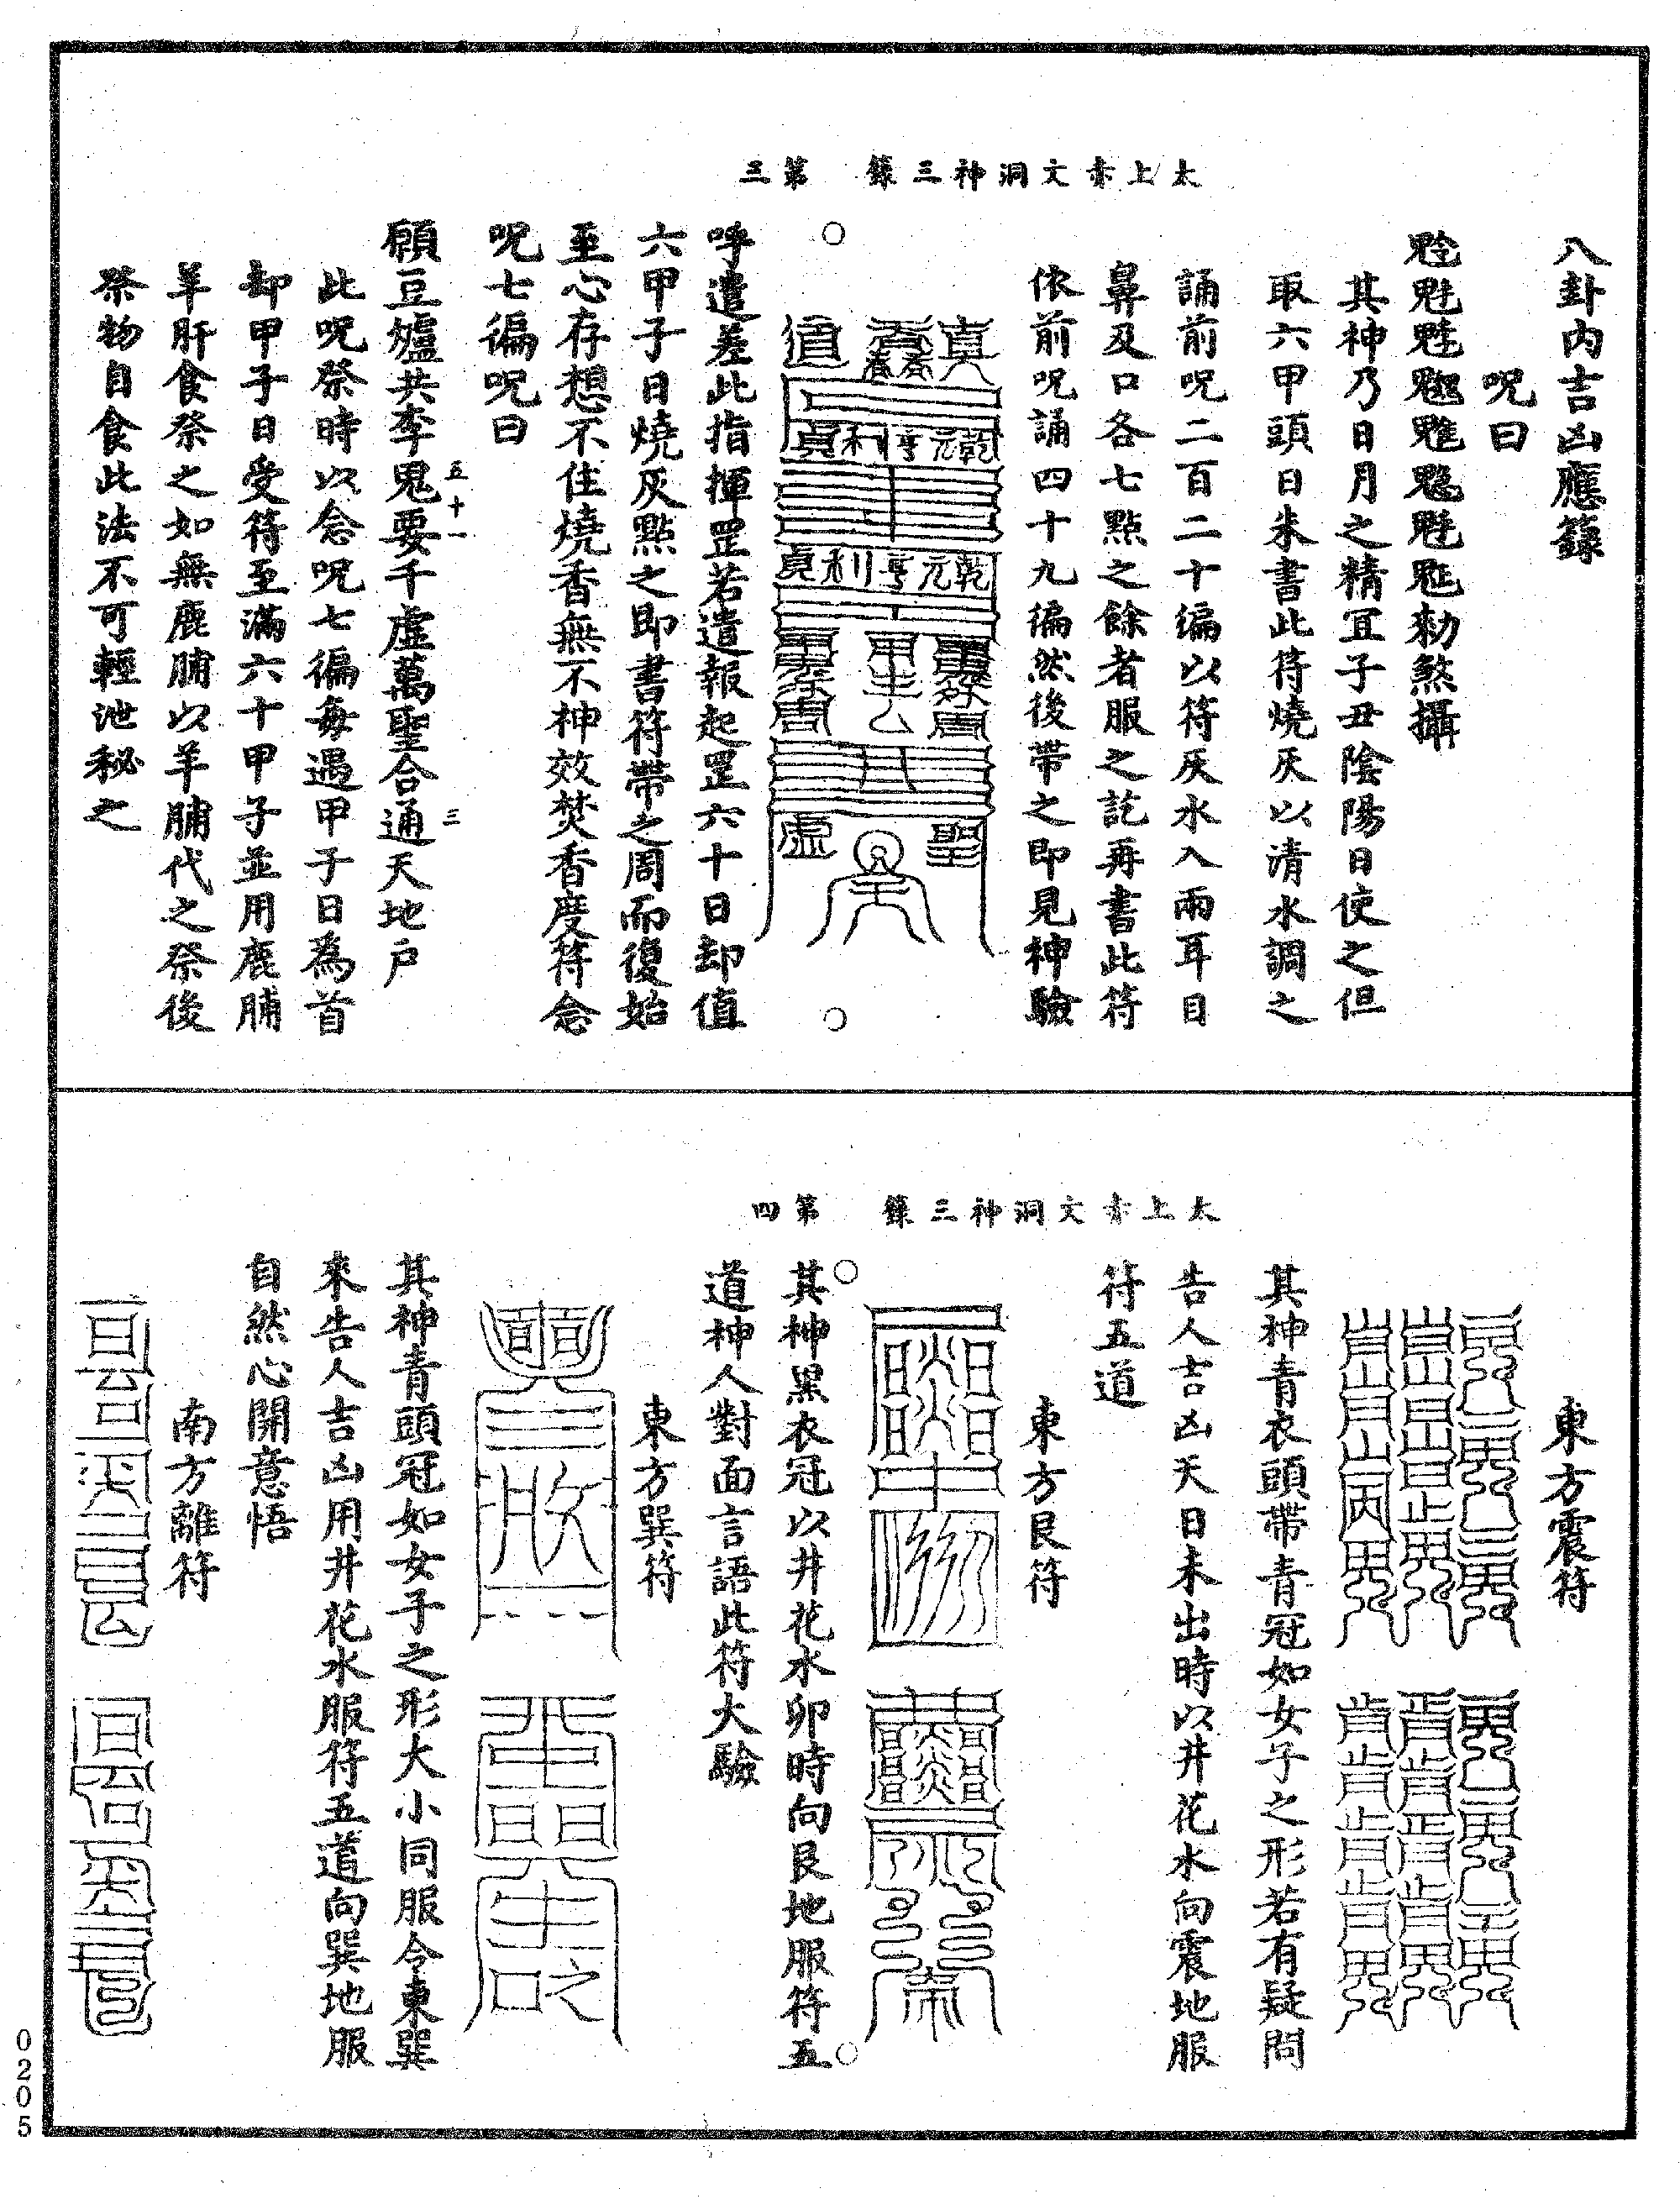 太上赤文洞神三籙　第三
八卦內吉凶應籙
呪曰
勑煞攝
其神乃日月之精宜子丑陰陽日使之但
取六甲頭日朱書此符燒灰以清水調之
誦前呪二百二十編以符灰水入兩耳目
鼻及口各七點之餘者服之訖再書此符
依前呪誦四十九徧然後帶之即見神驗
呼遣差此指揮罡若遣報起罡六十日却值
六甲子日燒灰點之即書符帶之周而復始
至心存想不住燒香無不神效焚香度符念
呪七徧呪曰
願豆爐共李鬼要千虛萬聖合通天地户
五十一　三
此呪祭時以念呪七徧每遇甲子日為首
却甲子日受符至滿六十甲子並用鹿脯
羊肝食祭之如無鹿脯以羊脯代之祭後
祭物自食此法不可輕泄秘之
太上赤文洞神三籙　第四
東方震符
其神青衣頭帶青冠如女子之形若有疑問
告人吉凶天日未出時以井花水向震地服
符五道
東方艮符
其神黑衣冠以井花水卯時向艮地服符五
道神人對面言語此符大驗
東方巽符
其神青頭冠如女子之形大小同服令東巽
來告人吉凶用井花水服符五道向巽地服
自然心開意悟
南方離符
0205